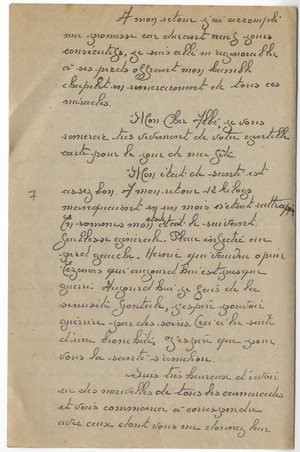 A mon retour j'ai accompli
ma promesse car durant neuf jours
consécutifs, je suis allé m'agenouiller
à ses pieds offrant mon humble
chapelet en remerciement de tous ces
miracles.
Mon Cher Abbé, je vous
remercie très vivement de votre gentille
carte pour le jour de ma fête.
Mon état de santé est
assez bon. A mon retour 12 kilogs
manquaient en un mois c'était rattrapé.
En sommes mon état est le suivant.
Faiblesse générale. Plaie infectée au
pied gauche. Hernie qui faudra opérer
Eczémas qui aujourd'hui est presque
guerri. Aujourd'hui je fais de la
sinusité frontale, j'espère pouvoir
guérrir par des soins. Ceci à la suite
d'une bronchite, j'espère que pour
vous la santé s'améliore.
Suis très heureux d'avoir
eu des nouvelles de tous les camarades
et vais commencer à correspondre
avec ceux dont vous me donnez leur
7